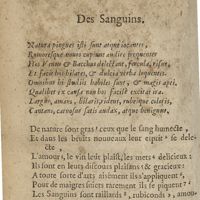 Des Sanguins.
Natura pingues isti sunt atque iocantes,
Rumoresque novos cupiunt audire frequenter
Hos Venus & Bacchus delectant, fercula, risus,
Et facit hos hilares, & dulcia verba loquentes.
Omnibus hi studiis habiles sunt, & magis apti,
Qualibet ex causa non hos facilè excitat ira.
Largus, amans, hilaris, ridens, rubeique coloris,
Cantans, carnosus satis audax, atque benignus.
De nature sont gras: ceux que le sang humecte,
Et dans les bruits nouveaux leur esprit se delecte:
L'amour, le vin leur plaist, les mets delicieux:
Ils sont en leurs discours plaisans & gracieux:
A toute sorte d'arts aisément ils s'appliquent:
Pour de maigres sujets rarement ils se piquent:
Les Sanguins sont raillards, rubiconds, amou-